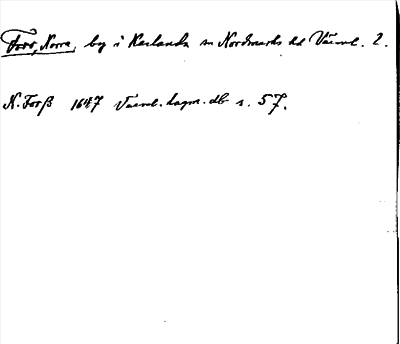 Fors, Norra, by i Karlanda sn Nordmarks hd Värml. l.
N. Forß 1647 Värml. lagm. db s. 57.